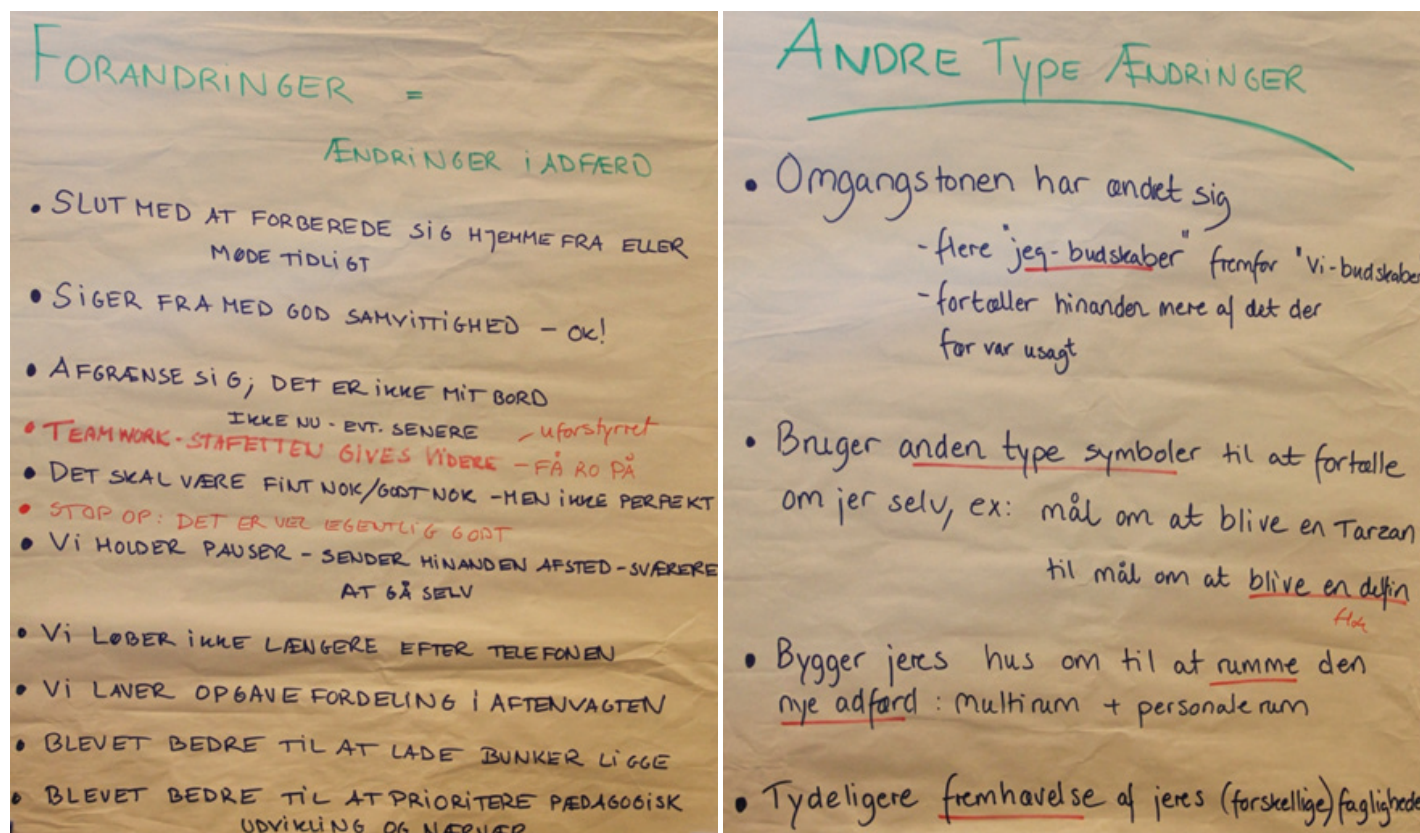 FORANDRINGER =
ÆNDRINGER I ADFÆRD
• SLUT MED AT FORBEREDE SIG HJEMME FRA ELLER
MØDE TIDLIGT
• SIGER FRA MED GOD SAMVITTIGHED – OK!
• AFGRÆNSE SIG; DET ER IKKE MIT BORD
IKKE NU - EVT. SENERE
• TEAMWORK - STAFETTEN GIVES VIDERE – FÅ RO PÅ
– uforstyrret
• DET SKAL VÆRE FINT NOK/GODT NOK – MEN IKKE PERFEKT
• STOP OP: DET ER VEL EGENTLIG GODT
• VI HOLDER PAUSER – SENDER HINANDEN AFSTED – SVÆRERE
AT GÅ SELV
• VI LØBER IKKE LÆNGERE EFTER TELEFONEN
• VI LAVER OPGAVE FORDELING I AFTENVAGTEN
• BLEVET BEDRE TIL AT LADE BUNKER LIGGE
• BLEVET BEDRE TIL AT PRIORITERE PÆDAGOGISK
UDVIKLING OG NÆRVÆR
ANDRE TYPE ÆNDRINGER
• Omgangstonen har ændet sig
- flere "jeg-budskaber" fremfor "Vi-budskaber
- fortæller hinanden mere af det der
før var usagt
• Bruger anden type symboler til at fortælle
om jer selv, ex: mål om at blive en Tarzan
til mål om at blive en delfin
• Bygger jeres hus om til at rumme den
nye adfærd : multirum + personale rum
• Tydeligere fremhævelse af jeres (forskellige) faglighede